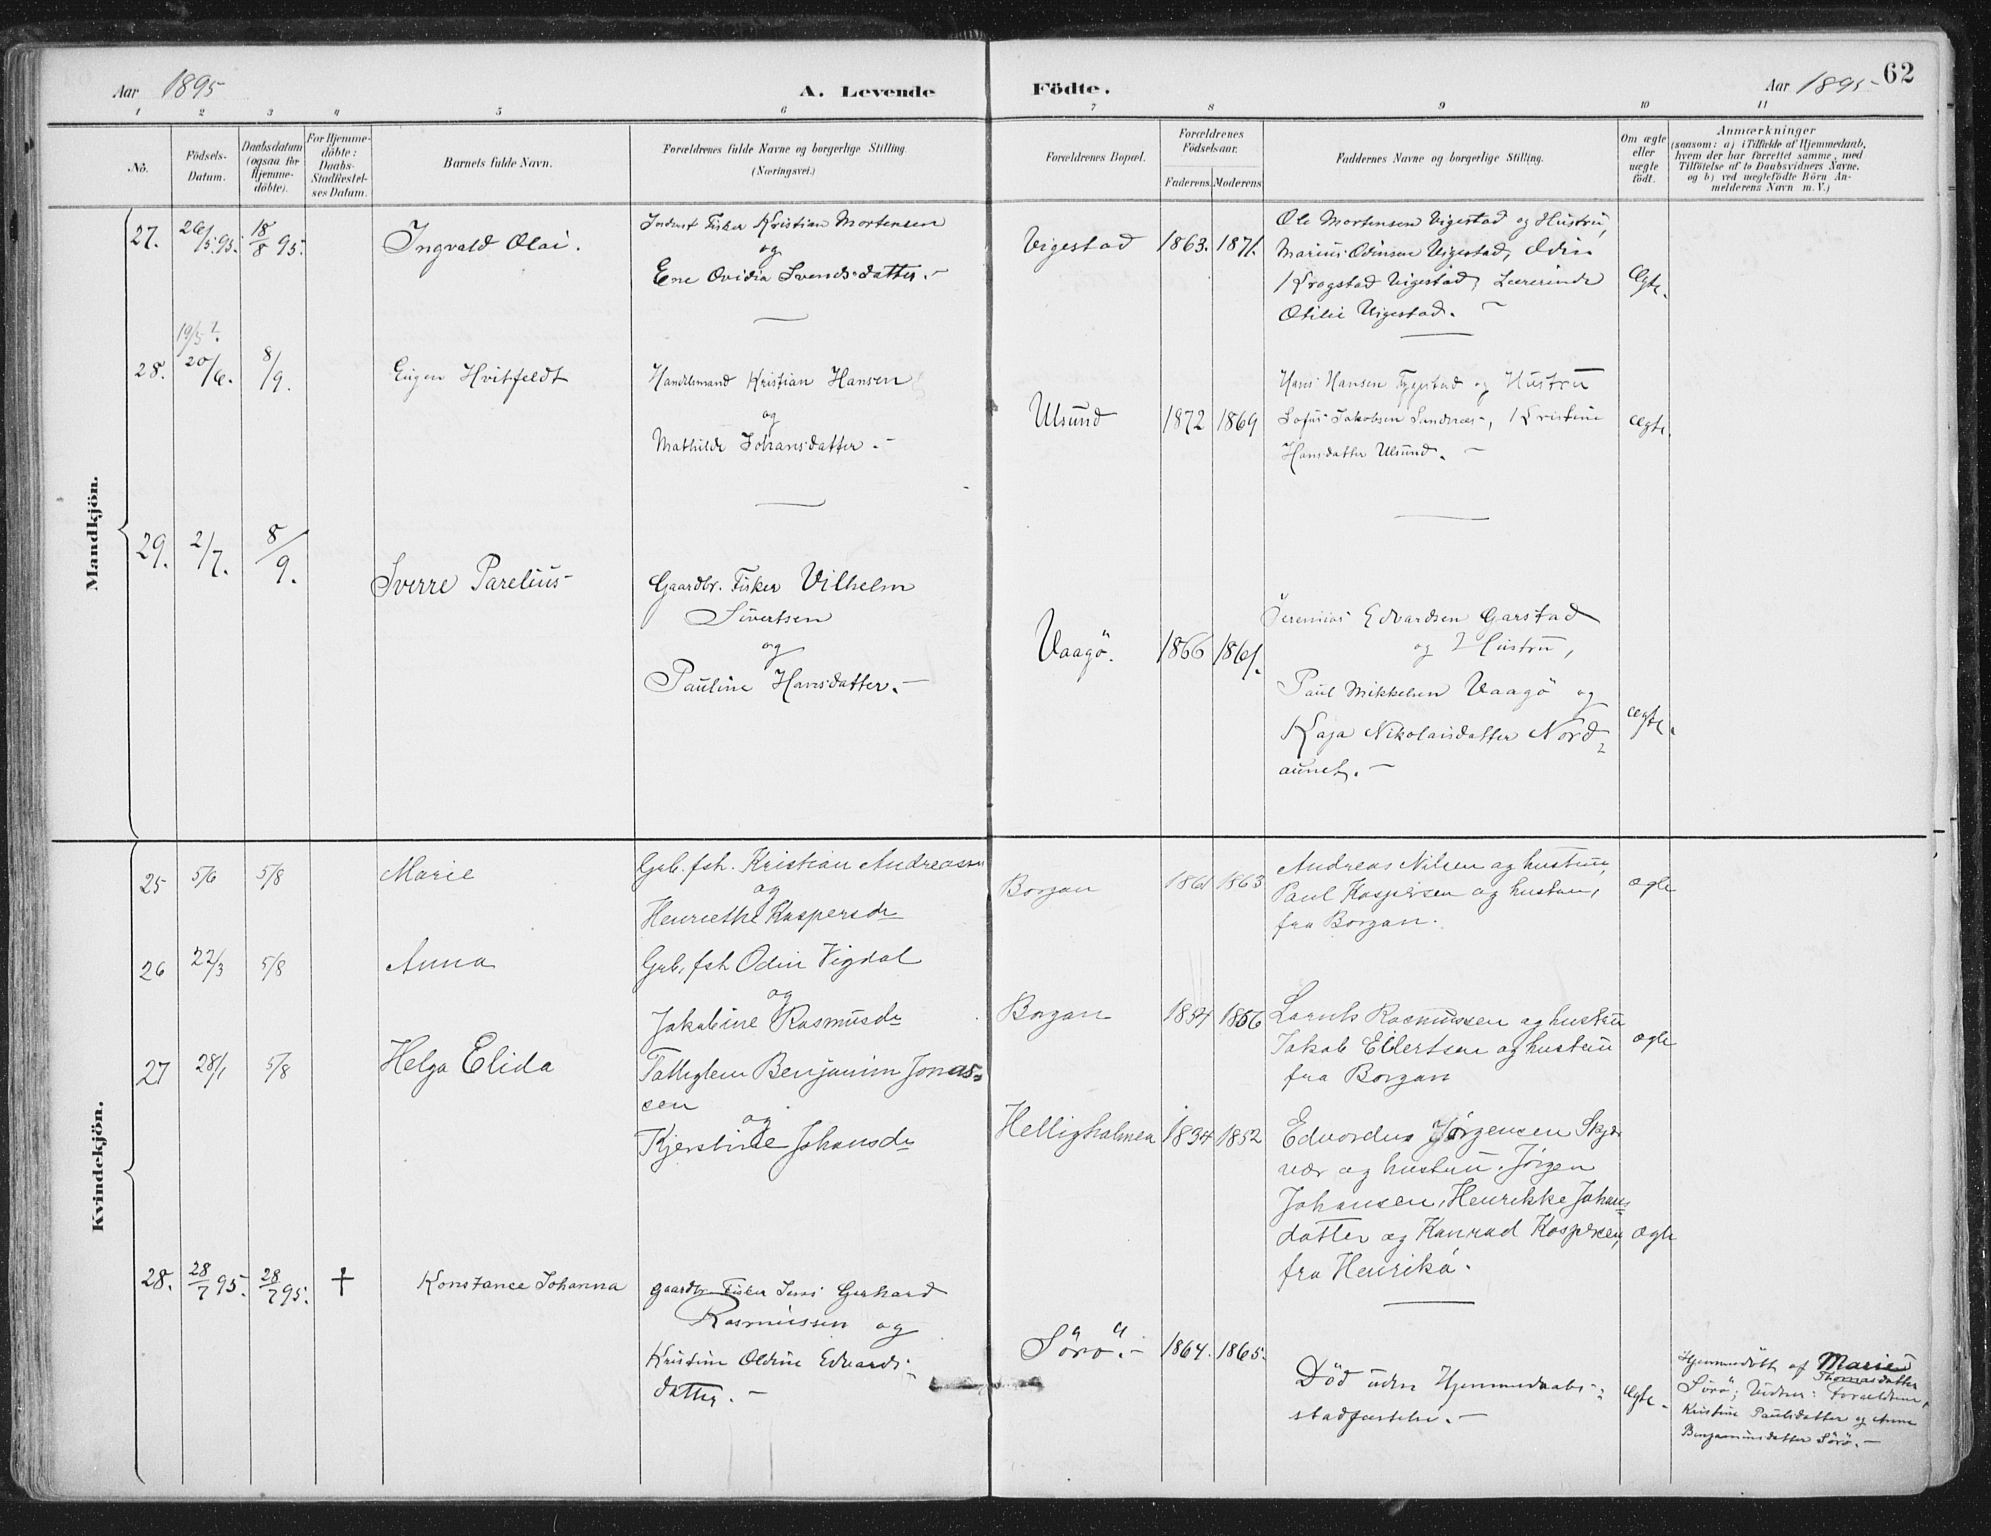 Aar 1895 A. Levende Födte. Aar 1895 62
1 2 3 4 5 6 7 8 9 10 11
No.
Födsels-
Datum.
Daabsdatum
(ogsaa for
Hjemme-
döbte).
For Hjemme-
döbte:
Daabs-
Stadfæstel-
ses Datum.
Barnets fulde Navn.
Forældrenes fulde Navne og borgerlige Stilling.
(Næringsvei.)
Forældrenes Bopæl.
Forældrenes
Födselsaar.
Faderens. Moderens.
Faddernes Navne og borgerlige Stilling.
Om ægte
eller
uægte
født.
Anmærkninger
(saasom: a) i Tilfælde af Hjemmedaab,
hvem der har forrettet samme, med
Tilføielse af to Daabsvidners Navne,
og b) ved uægtefödte Börn An-
melderens Navn m. V.)
Mandkjön.
27. 26/5 95. 18/8 95. Ingvald Olai.
Inderst Fisker Kristian Mortensen
og
Ene Ovidia Svendsdatter. —
Vigestad 1863. 1871.
Ole Mortensen Vigestad og Hustru,
Marius Odinsen Vigestad, Odin
Krogstad Vigestad, Lærerinde
Otilie Vigestad. —
Ægte.
19/5 ?.
28. 20/6. 8/9. Eugen Hvitfeldt
Handelsmand Kristian Hansen
og
Mathilde Johansdatter. —
Ulsund 1872 1869
Hans Hansen Fygestad og Hustru
Sofus Jakobsen Sundnæs, Kristine
Hansdatter Ulsund. —
Ægte.
29. 2/7. 8/9. Sverre Parelius
Gaardbr. Fisker Vilhelm
Sivertsen
og
Pauline Hansdatter. —
Vaagö. 1866 1861.
Jeremias Edvardsen Garstad
og Hustru,
Paul Mikkelsen Vaagö og
Kaja Nikolaisdatter Nord-
aunet. —
Ægte.
Kvindekjön.
25 5/6 5/8 Marie
Grb. fsk. Kristian Andreassen
og
Henriethe Kaspersdr
Borgan 1861 1863
Andreas Nilsen og hustru,
Paul Kaspersen og hustru,
fra Borgan.
ægte
26 22/3 5/8 Anna
Grb. fsk Odin Vigdal
og
Jakobine Rasmusdr
Borgan 1854 1856
Lornts Rasmussen og hustru
Jakob Ellertsen og hustru
fra Borgan
ægte
27 28/1 5/8 Helga Elida
Fattiglem Benjamin Jonas-
sen
og
Kjerstine Johansdr
Helligholmen 1834 1852
Edvardus Jørgensen Skjær
vær og hustru. Jørgen
Johansen, Henrikke Johans
datter og Konrad Kaspersen,
fra Henrikö.
ægte
28. 28/7 95. 28/7 95. † Konstance Johanna
Gaardbr. Fisker Jens Gerhard
Rasmussen og
Kristine Oldine Edvards-
datter. —
Sörö. — 1864. 1865.
Död uden Hjemmedaabs-
stadfæstelse. —
Ægte.
Hjemmedöbt af Marie
Thomasdatter
Sörö; Vidner: Forældrene,
Kristine Paulsdatter og Anne
Benjaminsdatter Sörö. —